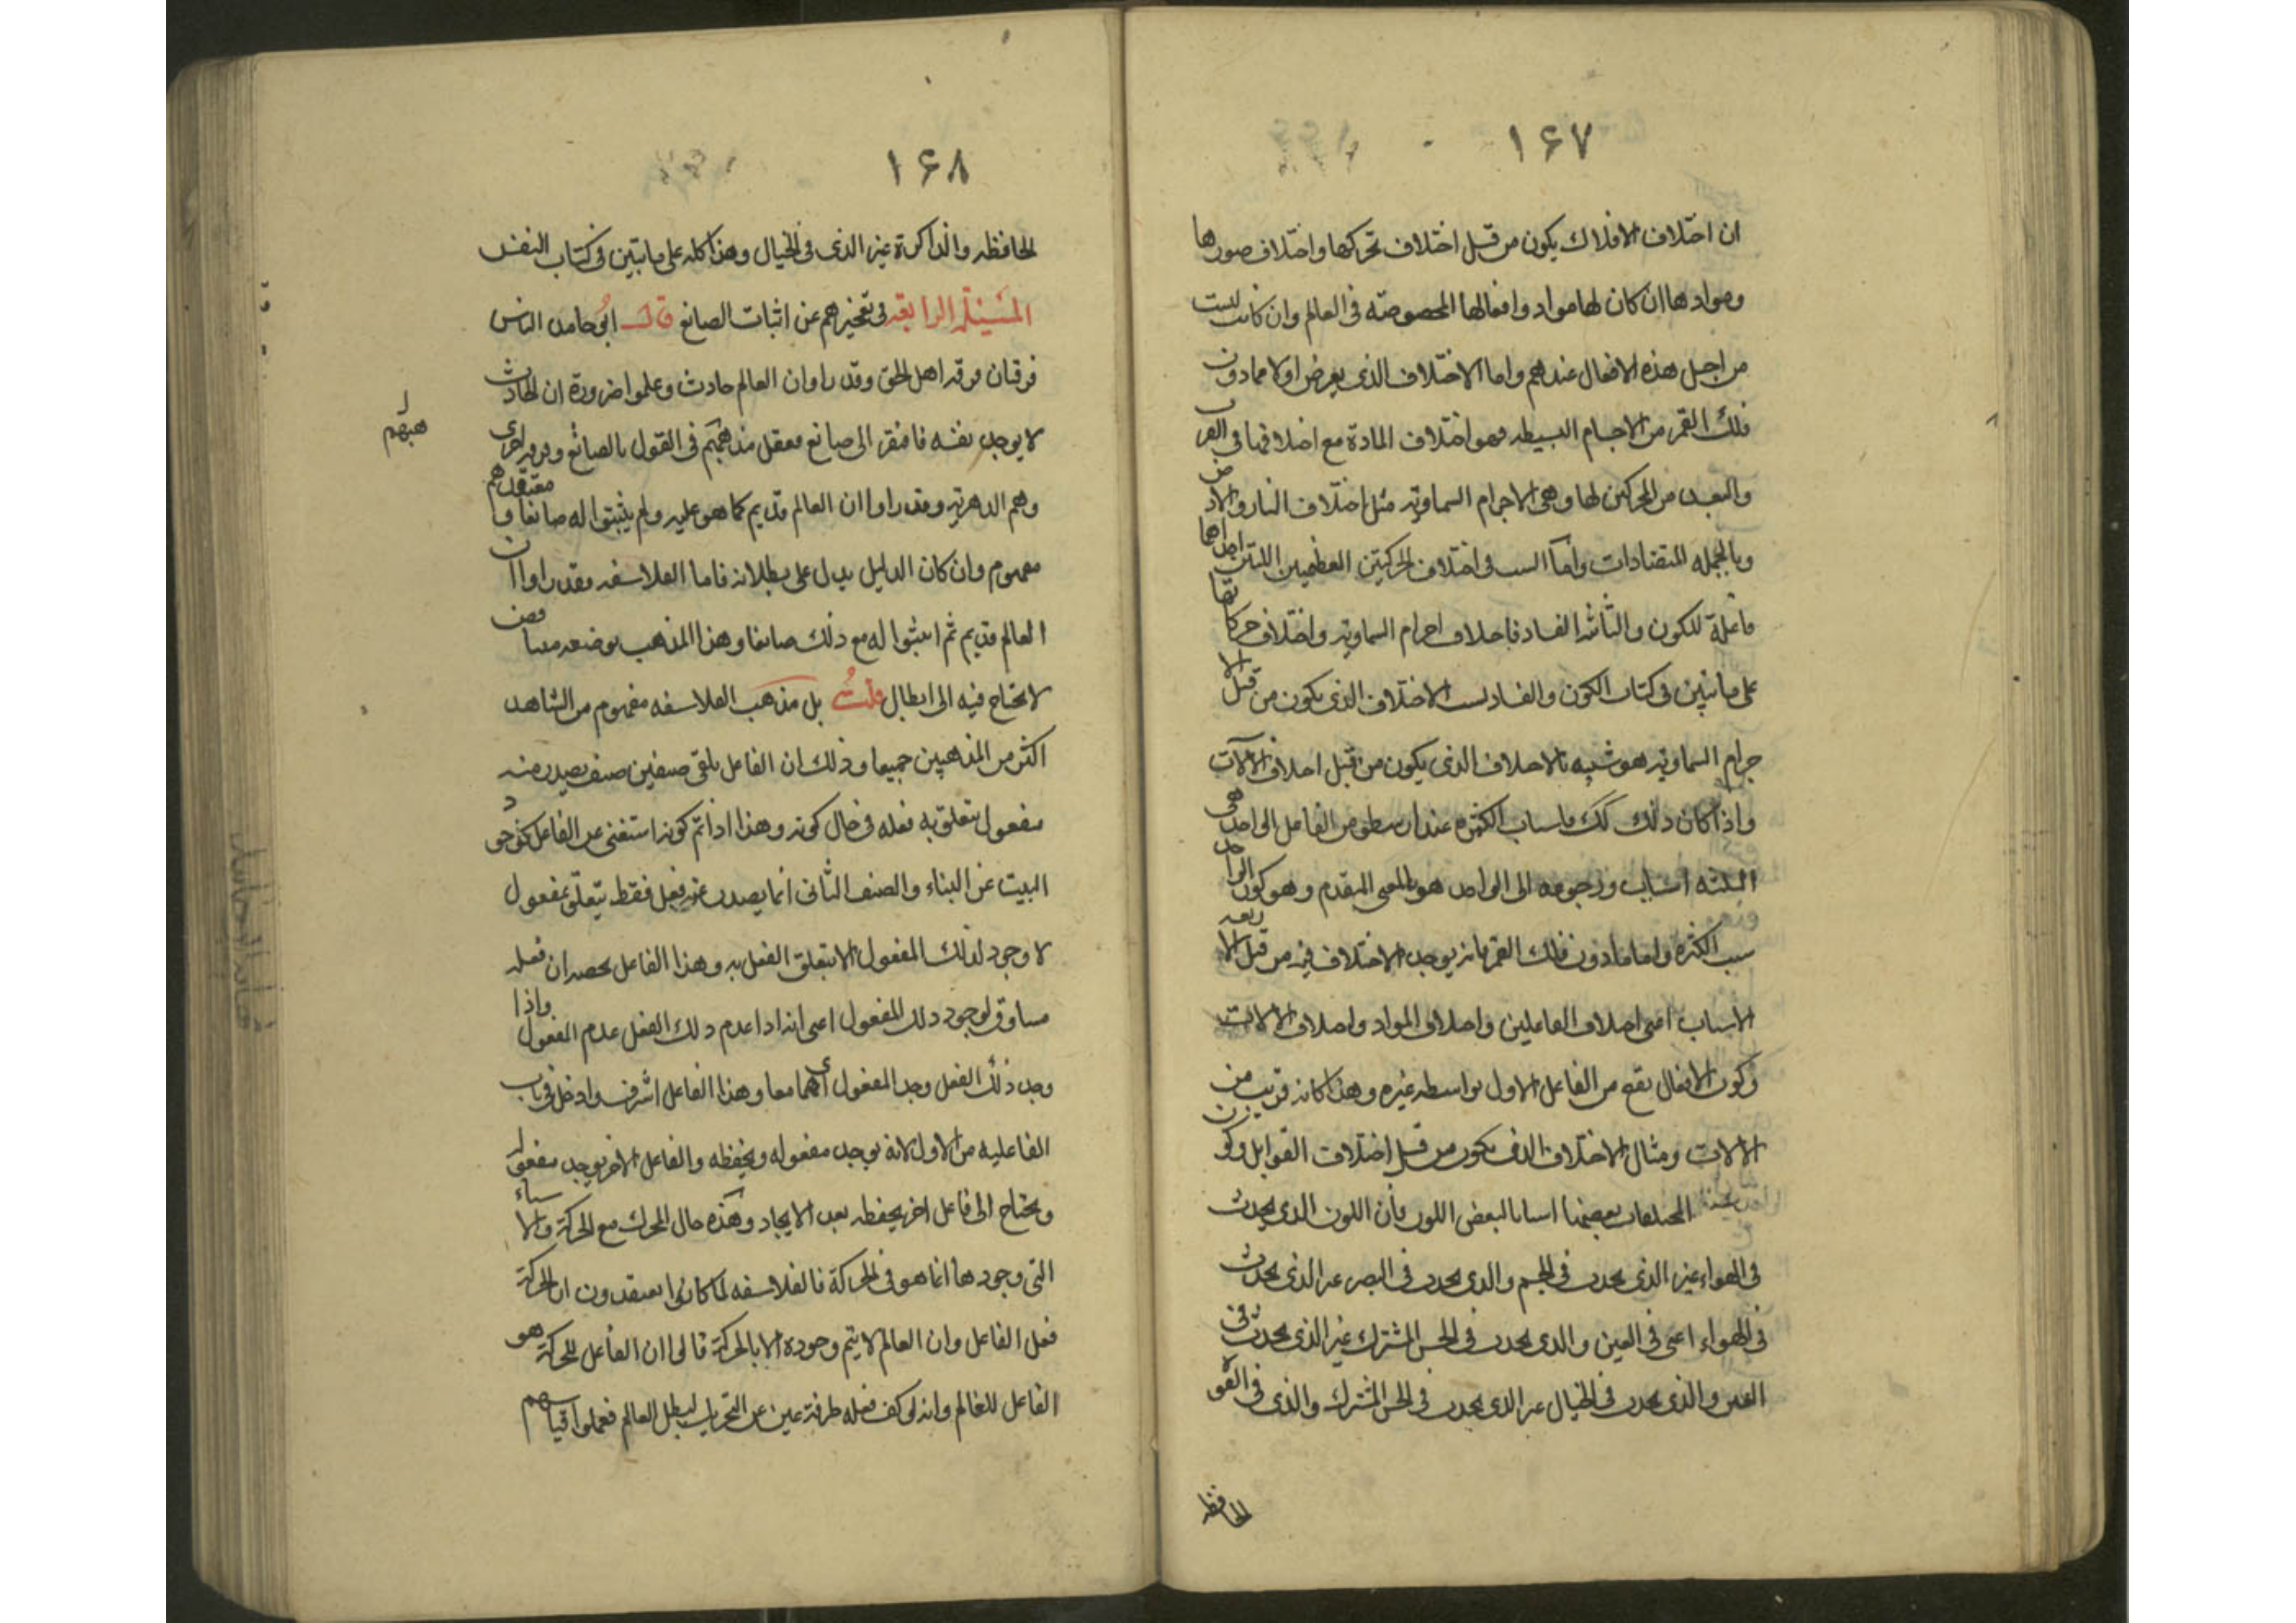 ١۶٧
ان اختلاف الافلاك يكون من قبل اختلاف تحركها واختلاف صورها
وموادها ان كان لها مواد وافعالها المخصوصة فى العالم وان كانت ليست
من اجل هذه الافعال عندهم واما الاختلاف الذى يعرض اولا مما دون
فلك القمر من الاجسام البسيطه فهو اختلاف المادة مع اختلافها فى القرب
والبعد من المحركين لها وهى الاجرام السماويه مثل اختلاف النار والارض
وبالجمله المتضادات واما السبب فى اختلاف الحركتين العظيمين اللتين احداهما
فاعلة للكون والثانية الفساد فاختلاف اجرام السماويه واختلاف حركاتها
على ما تبين فى كتاب الكون والفساد لست الاختلاف الذى يكون من قبل الا
جرام السماويه هو شبيه بالاختلاف الذى يكون من قبل اختلاف الآلات
واذا كان ذلك كك فاسباب الكثرة عند ارسطو من الفاعل الواحد هى
الثلثه اسباب ورجوعه الى الواحد هو بالمعنى المتقدم وهو كون الواحد
سبب الكثرة واما ما دون فلك القمر فانه يوجد الاختلاف فيه من قبل الاربعه
الاسباب اعنى اختلاف الفاعلين واختلاف المواد واختلاف الالات
وكون الافعال تقع من الفاعل الاول بواسطه غيره وهذا كانه قريب من
الالات ومثال الاختلاف الذى يكون من قبل اختلاف القوابل وكون
المختلفات بعضها اسبابا لبعض اللون فان اللون الذى يحدث
فى الهواء غير الذى يحدث فى الجسم والذى يحدث فى البصر غير الذى يحدث
فى الهواء اعنى فى العين والذى يحدث فى الحس المشترك غير الذى يحدث فى
العين والذى يحدث فى الخيال غير الذى يحدث فى الحس المشترك والذى فى القوة
الحافظه
١۶٨
الحافظه والذاكرة غير الذى فى الخيال وهذا كله على ما تبين فى كتاب النفس
المسئلة الرابعه فى تعجيزهم عن اثبات الصانع قال ابو حامد الناس
فرقتان فرقه اهل الحق وقد راوا ان العالم حادث وعلموا ضرورة ان الحادث
لا يوجد بنفسه فافتقر الى صانع فعقل مذهبهم فى القول بالصانع وفرقه اخرى
هبهم
وهم الدهريه وقد راوا ان العالم قديم كما هو عليه ولم يثبتوا له صانعا ومعتقدهم
مفهوم وان كان الدليل يدل على بطلانه فاما الفلاسفه فقد راوا ان
العالم قديم ثم اثبتوا له مع ذلك صانعا وهذا المذهب بوضعه متناقض
لا يحتاج فيه الى ابطال قلت بل مذهب الفلاسفه مفهوم من الشاهد
اكثر من المذهبين جميعا وذلك ان الفاعل يلقى صنفين صنف يصدر منه
مفعول يتعلق به فعله فى حال كونه وهذا اذا تم كونه استغنى عن الفاعل كوجود
البيت عن البناء والصنف الثانى انما يصدر عنه فعل فقط يتعلق بمفعول
لا وجود لذلك المفعول الا بتعلق الفعل به وهذا الفاعل يخصه ان فعله
مساوق لوجود ذلك المفعول اعنى انه اذا عدم ذلك الفعل عدم المفعول واذا
وجد ذلك الفعل وجد المفعول اى هما معا وهذا الفاعل اشرف وادخل فى باب
الفاعليه من الاول لانه يوجد مفعوله ويحفظه والفاعل الاخر يوجد مفعوله
ويحتاج الى فاعل اخر يحفظه بعد الايجاد وهذه حال المحرك مع الحركة والاشياء
التى وجودها انما هو فى الحركة فالفلاسفه لما كانوا يعتقدون ان الحركة
فعل الفاعل وان العالم لا يتم وجوده الا بالحركة قالوا ان الفاعل للحركة هو
الفاعل للعالم وانه لو كف فعله طرفة عين عن التحريك لبطل العالم فعملوا قياسهم